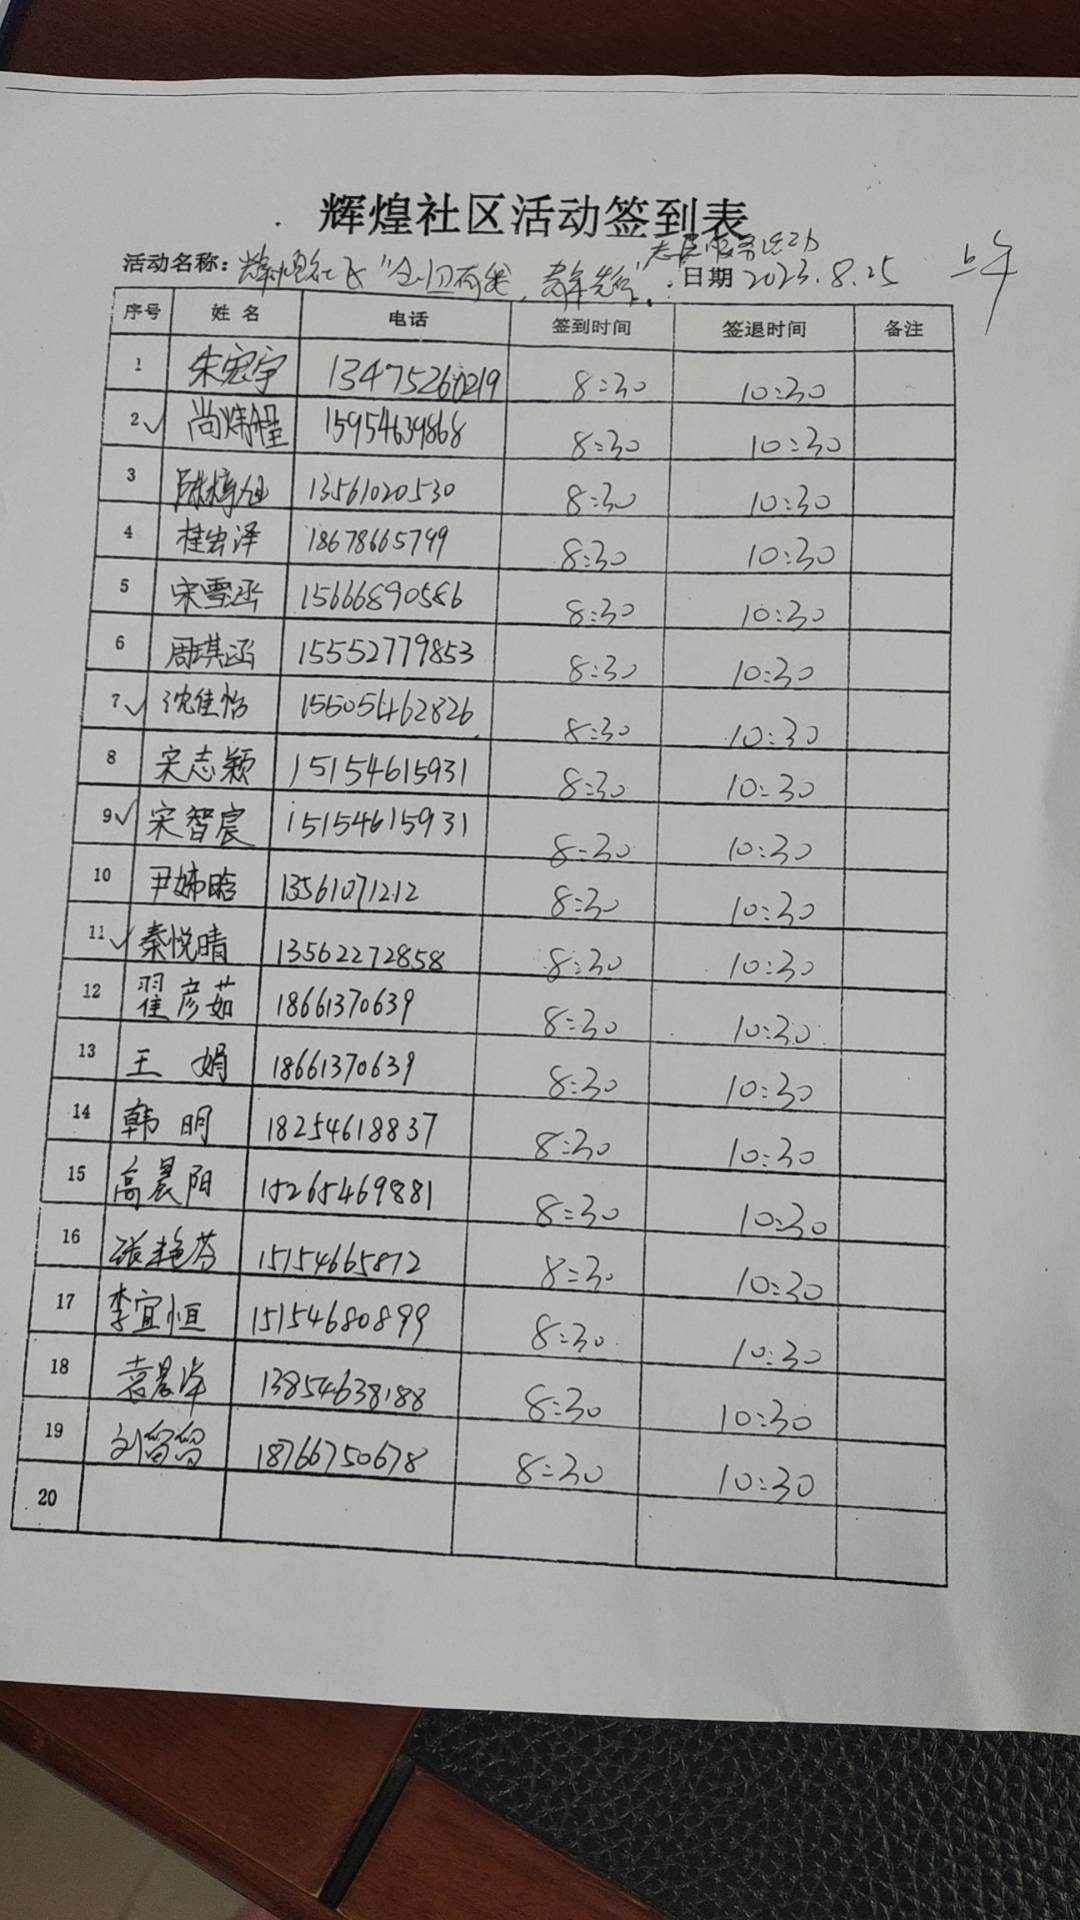 辉煌社区活动签到表
志愿服务活动
活动名称：辉煌社区“创、青先行”。 日期 2023.8.25 上午
序号 姓名 电话 签到时间 签退时间 备注
1 朱宏宇 13475260219 8:30 10:30
2✓ 尚炜程 15954639868 8:30 10:30
3 13561020530 8:30 10:30
4 桂出泽 18678665799 8:30 10:30
5 宋雪涵 15666890586 8:30 10:30
6 周琪涵 15552779853 8:30 10:30
7✓ 沈佳怡 156054462826 8:30 10:30
8 宋志颖 15154615931 8:30 10:30
9✓ 宋智宸 15154615931 8:30 10:30
10 尹姊晗 13561071212 8:30 10:30
11✓ 秦悦晴 13562272858 8:30 10:30
12 翟彦茹 18661370639 8:30 10:30
13 王娟 18661370639 8:30 10:30
14 韩明 18254618837 8:30 10:30
15 高晨阳 15265469881 8:30 10:30
16 张艳芬 15154665872 8:30 10:30
17 李宜恒 15154680899 8:30 10:30
18 袁晨洋 13854638188 8:30 10:30
19 刘留留 18766750678 8:30 10:30
20